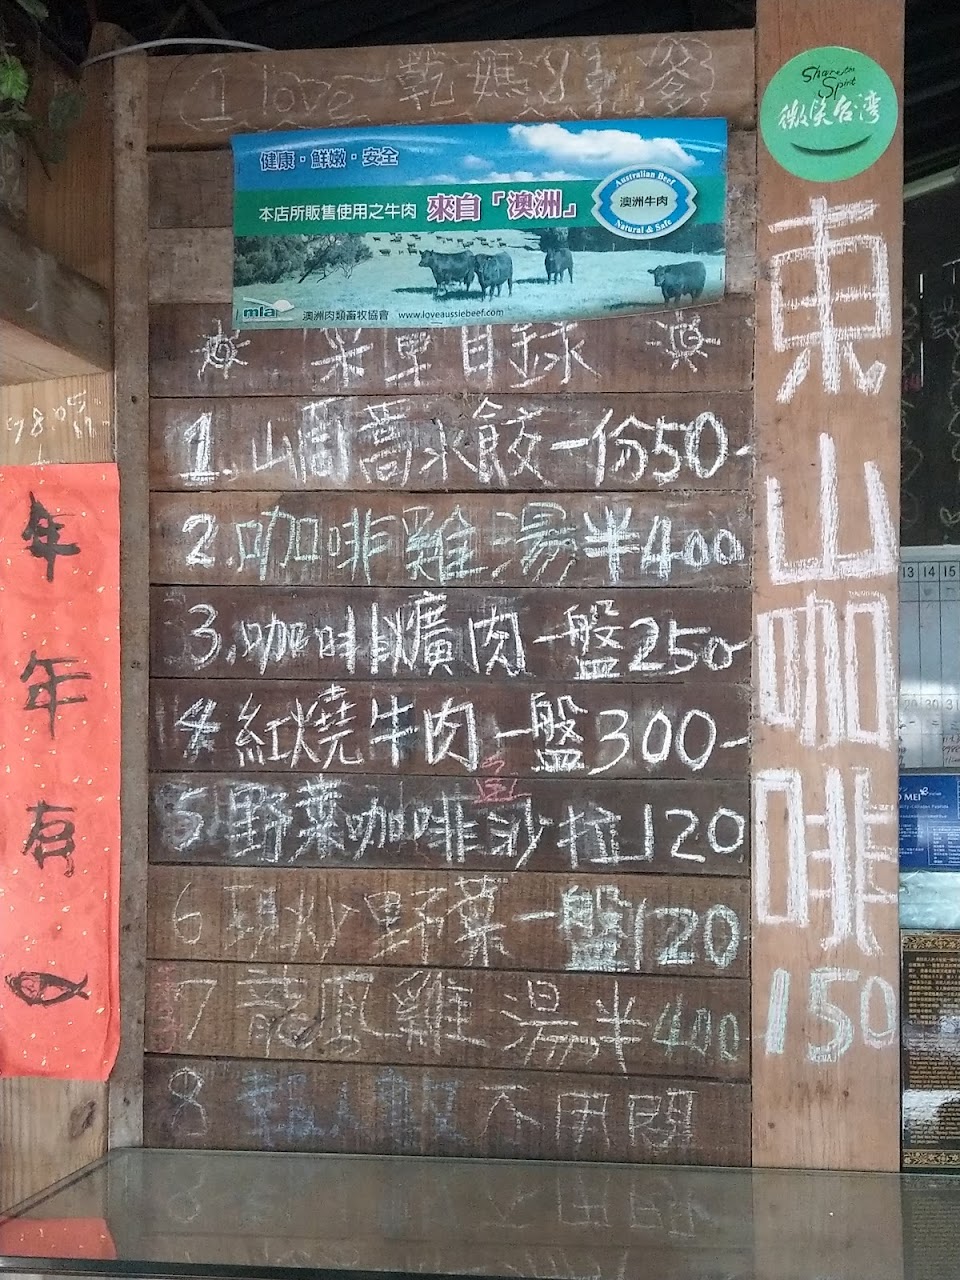 I love 乾媽&乾爸
健康・鮮嫩・安全
本店所販售使用之牛肉 來自「澳洲」
Australian Beef
澳洲牛肉
Natural & Safe
mla
澳洲肉類畜牧協會 www.loveaussiebeef.com
Share the Spirit
微笑台灣
菜單目錄
1.山茼蒿水餃一份50
2.咖啡雞湯半400
3.咖啡爌肉一盤250
4 紅燒牛肉一盤300
5 野菜咖啡沙拉120
6 現炒野菜一盤120
7 龍鳳雞湯半400
8 不用問
東山咖啡150
年年有
98.05
13 14 15